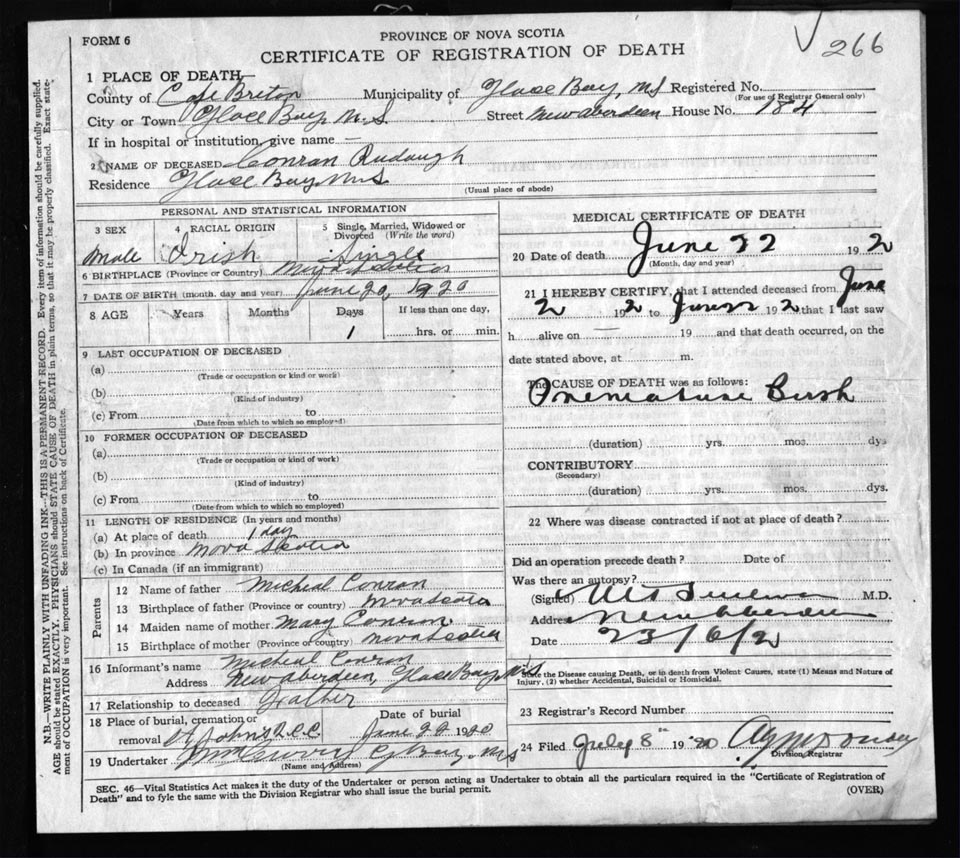 266
FORM 6
PROVINCE OF NOVA SCOTIA
CERTIFICATE OF REGISTRATION OF DEATH
1 PLACE OF DEATH—
County of Cape Breton Municipality of Glace Bay, N.S Registered No.
(For use of Registrar General only)
City or Town Glace Bay N.S Street New Aberdeen House No. 184
If in hospital or institution, give name
2 NAME OF DECEASED Conran
Residence Glace Bay N.S
(Usual place of abode)
PERSONAL AND STATISTICAL INFORMATION
3 SEX 4 RACIAL ORIGIN 5 Single, Married, Widowed or Divorced (Write the word)
Male Irish Single
6 BIRTHPLACE (Province or Country) Nova Scotia
7 DATE OF BIRTH (month, day and year) June 20, 1920
8 AGE Years Months Days If less than one day,
1 hrs. or min.
9 LAST OCCUPATION OF DECEASED
(a)
(Trade or occupation or kind or work)
(b)
(Kind of industry)
(c) From to
(Date from which to which so employed)
10 FORMER OCCUPATION OF DECEASED
(a)
(Trade or occupation or kind of work)
(b)
(Kind of industry)
(c) From to
(Date from which to which so employed)
11 LENGTH OF RESIDENCE (In years and months)
(a) At place of death 1 day
(b) In province Nova Scotia
(c) In Canada (if an immigrant)
Parents
12 Name of father Micheal Conran
13 Birthplace of father (Province or country) Nova Scotia
14 Maiden name of mother Mary
15 Birthplace of mother (Province or country) Nova Scotia
16 Informant's name Micheal Conran
Address New Aberdeen, Glace Bay, N.S
17 Relationship to deceased Father
18 Place of burial, cremation or Date of burial
removal St John's June 22 1920
19 Undertaker
(Name and Address)
MEDICAL CERTIFICATE OF DEATH
20 Date of death June 22 192
(Month, day and year)
21 I HEREBY CERTIFY, that I attended deceased from June
192 to June 192 that I last saw
h alive on 19 and that death occurred, on the
date stated above, at m.
The CAUSE OF DEATH was as follows:
Premature Birth
(duration) yrs. mos. dys
CONTRIBUTORY
(Secondary)
(duration) yrs. mos. dys.
22 Where was disease contracted if not at place of death?
Did an operation precede death? Date of
Was there an autopsy?
(Signed) M.D.
Address New Aberdeen
Date 23/6/2
State the Disease causing Death, or in death from Violent Causes, state (1) Means and Nature of
Injury, (2) whether Accidental, Suicidal or Homicidal.
23 Registrar's Record Number
24 Filed July 8th 1920
Division Registrar
SEC. 46—Vital Statistics Act makes it the duty of the Undertaker or person acting as Undertaker to obtain all the particulars required in the "Certificate of Registration of
Death" and to fyle the same with the Division Registrar who shall issue the burial permit. (OVER)
N.B.—WRITE PLAINLY WITH UNFADING INK—THIS IS A PERMANENT RECORD. Every item of information should be carefully supplied.
AGE should be stated EXACTLY. PHYSICIANS should STATE CAUSE OF DEATH in plain terms, so that it may be properly classified. Exact state-
ment of OCCUPATION is very important. See instructions on back of Certificate.